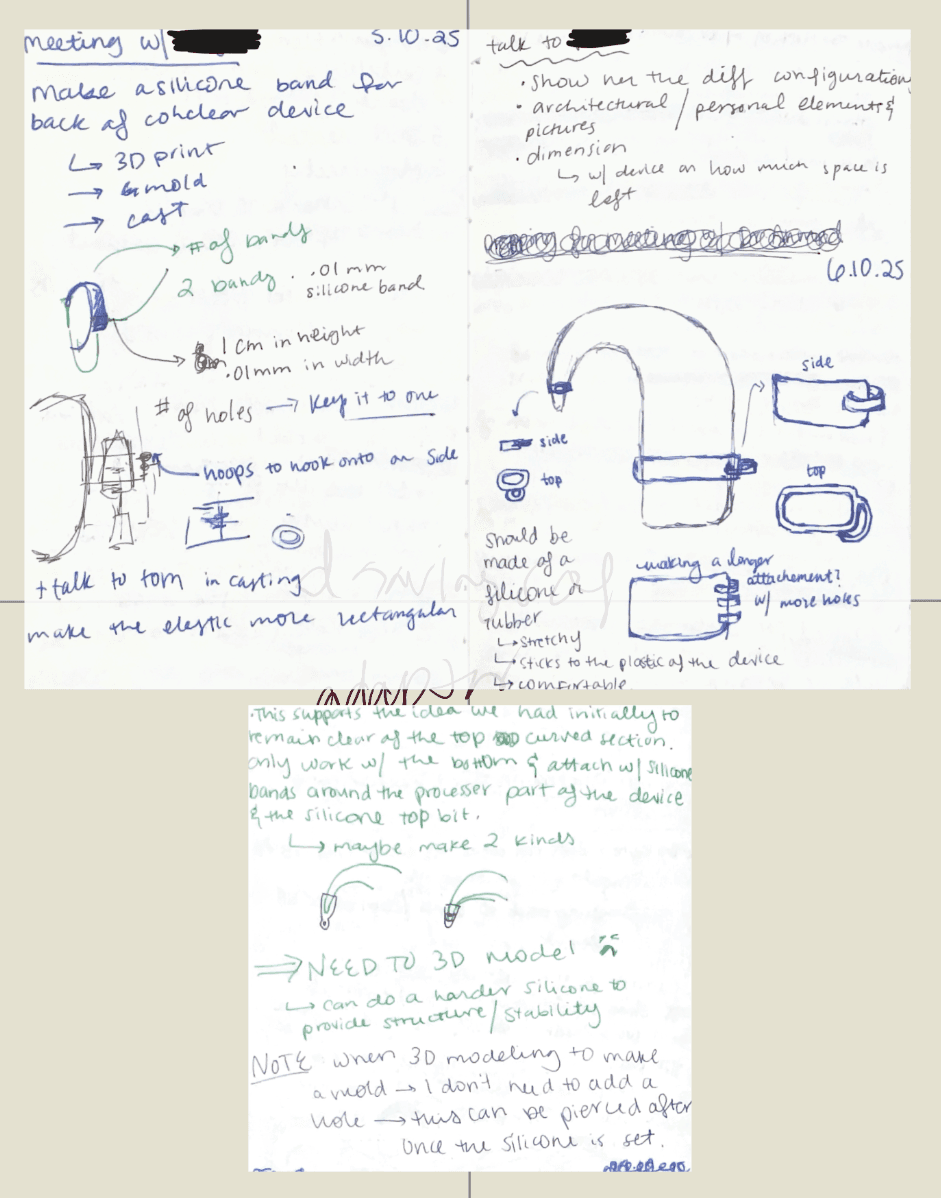 meeting w/
5.10.25
make a silicone band for
back of cohclear device
↳ 3D print
→ mold
→ cast
→ # of bands
2 bands
.01 mm
silicone band
1 cm in height
.01mm in width
# of holes → keep it to one
hoops to hook onto on side
+ talk to tom in casting
make the elastic more rectangular
talk to
• show her the diff configuration
• architectural / personal elements &
pictures
• dimension
↳ w/ device on how much space is
left
6.10.25
side
side
top
top
should be
made of a
silicone or
rubber
↳ stretchy
↳ sticks to the plastic of the device
↳ comfortable
making a longer
attachement?
w/ more holes
• This supports the idea we had initially to
remain clear of the top curved section.
only work w/ the bottom & attach w/ silicone
bands around the processer part of the device
& the silicone top bit.
↳ maybe make 2 kinds
⇒ NEED TO 3D model
↳ can do a harder silicone to
provide structure/stability
NOTE when 3D modeling to make
a mold → I don't need to add a
hole → this can be pierced after
once the silicone is set.